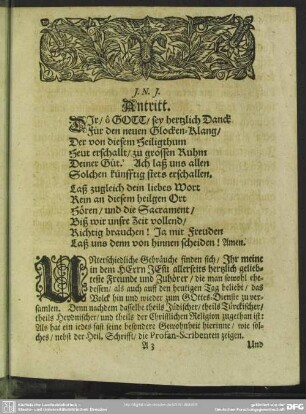 J. N. J.
Antritt.
DIr/ ô GOTT/ sey hertzlich Danck
Für den neuen Glocken-Klang/
Der von diesem Heiligthum
Heut erschallt/ zu grossen Ruhm
Deiner Güt. Ach laß uns allen
Solchen künfftig stets erschallen.
Laß zugleich dein liebes Wort
Rein an diesem heilgen Ort
Hören/ und die Sacrament/
Biß wir unsre Zeit vollend/
Richtig brauchen! Ja mit Freuden
Laß uns denn von hinnen scheiden! Amen.
UNterschiedliche Gebräuche finden sich/ Ihr meine
in dem HErrn JEsu allerseits hertzlich gelieb-
teste Freunde und Zuhörer/ die man sowohl ehe-
dessen/ als auch auf den heutigen Tag beliebt/ das
Volck hin und wieder zum GOttes-Dienste zu ver-
samlen. Denn nachdem dasselbe theils Jüdischer/ theils Türckischer/
theils Heydnischer/ und theils der Christlichen Religion zugethan ist:
Als hat ein iedes fast seine besondere Gewohnheit hierinne/ wie sol-
ches/ nebst der Heil. Schrifft/ die Profan-Scribenten zeigen.
A 3 Und